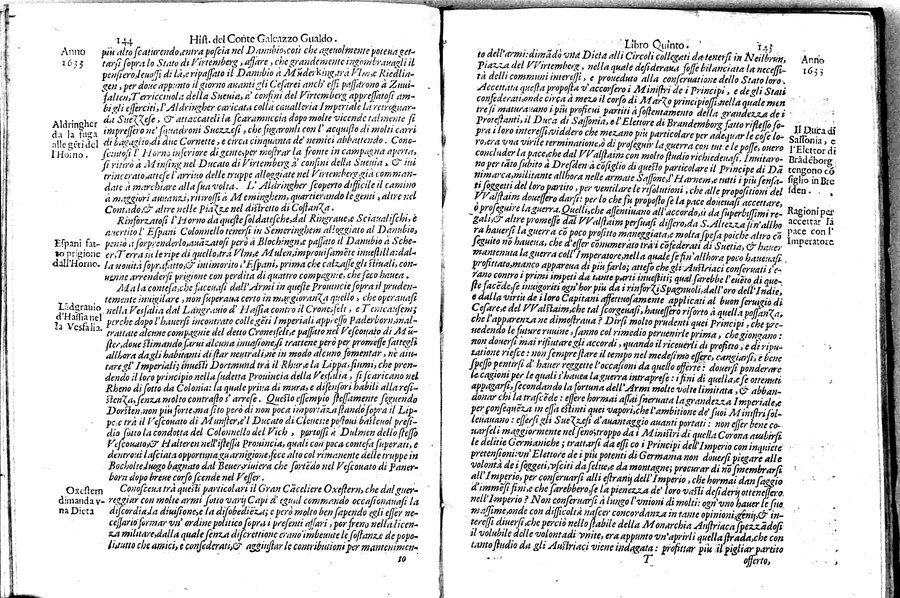 144 Hist. del Conte Galeazzo Gualdo.
Anno
1633
più alto scaturendo, entra poscia nel Danubio, così che ageuolmente poteua get-
tarsi sopra lo Stato di VVirtemberg, affare, che grandemente ingombrauagli il
pensiero, leuossi di là, e ripassato il Danubio à Munderking, trà Vlm, e Riedlin-
gen, per doue appunto il giorno auanti gli Cesarei anch' essi passarono à Zuui-
falten, Terricciuola della Sueuia, a' confini del VVirtemberg appressatosi am-
bigli esserciti, l'Aldringher caricata colla caualleria Imperiale la retroguar-
da Suezzese, & attaccateli la scaramuccia dopo molte vicendeuolmente si
impressero ne' squadroni Suezzesi, che fugaronli con l'acquisto di molti carri
di bagaglio, di due Cornette, e circa cinquanta de' nemici abbattendo. Cono-
sciutosi l'Horno inferiore di gente, per mostrar la fronte in campagna aperta,
si ritirò à Minsing nel Ducato di VVirtemberg à confini della Sueuia, & iui
intrepido, attese l'arriuo delle truppe alloggiate nel VVirtemberg, già comman-
date à marchiare alla sua volta. L'Aldringher scoperto difficile il camino
à maggiori auanzi, ritirossi à Meminghem, quartierando le genti, altre nel
Contado, & altre nelle Piazze nel distretto di Costanza.
Aldringher
da la fuga
alle gēti del
l'Hoino.
Rinforzatosi l'Horno da queste soldatesche, dal Ringraue, e Scianalischi, è
auertito l'Espani Colonnello tenersi in Semeringhem alloggiato al Danubio,
pensò a sorprenderlo, auuāzatosi però à Blochingen, e passato il Danubio à Sche-
er, Terra in le ripe di quello, trà Vlm, e Mulen, improuisamēte inuestilla: dal-
la nouità soprafatto, & intimorito l'Espani, prima che calzasse gli stiuali, con-
uenne arrendersi prigione con perdita di quattro compagnie, che seco haueua.
Espani fat-
to prigione
dall'Horno.
Mà la contesa, che faceuasi dall'Armi in queste Prouincie sopra il pruden-
temente inuigilare, non superaua certo in maggioranza quello, che operauasi
nella Vesfalia dal Langrauio d'Hassia contro il Cronesfelt, e Tencausem;
perche dopo l'hauersi incontrato colle gēti Imperiali appresso Paderborn, mal-
trattate alcune compagnie del detto Cronesfelt, e passato nel Vescouato di Mū-
ster, doue stimando farui alcuna inuasione, si trattene però per promesse fattegli
allhora dagli habitanti di star neutrali, nè in modo alcuno fomentar, nè aiu-
tare gl'Imperiali; inuestì Dortmund trà il Rhur, e la Lippa, fiumi, che pren-
dendo il loro principio nella sudetta Prouincia della Vesfalia, si scaricano nel
Rheno di sotto da Colonia: la quale priua di mura, e difensori habili alla resi-
stenza, senza molto contrasto s'arrese. Questo essempio stessamente seguendo
Dorsten, non più forte, ma sito però di non poca importāza stando sopra il Lip-
pe, e trà il Vescouato di Munster, e'l Ducato di Cleueste postoui basteuol presi-
dio sotto la condotta del Colonnello del Vich, partossi à Dulmen dello stesso
Vescouato, & Halteren nell'istessa Prouincia, quali con poca contesa superate, e
dentro ui lasciata opportuna guarnigione, fece alto col rimanente delle truppe in
Bocholte, luogo bagnato dal Beuer, riuiera che sortēdo nel Vescouato di Pater-
born dopo breue corso scende nel Vesser.
Lādgrauio
d'Hassia nel
la Vesfalia.
Conosceua trà questi particolari il Gran Cācelliere Oxestern, che dal guer-
reggiar con molte armi sotto varij Capi d'egual commando occasionauasi la
discordia, la diuisione, e la disobediēza; e però molto ben sapendo egli esser ne-
cessario formar vn'ordine politico sopra i presenti affari, por freno, nella licen-
za militare, dalla quale senza discrettione erano imbeuute le sostanze de popo-
li, tutto che amici, e confederati, & aggiustar le contribuzioni per mantenimen-
Oxestern
dimanda v-
na Dieta
10
Libro Quinto. 145
Anno
1633
to dell'armi: dimādò vna Dieta alli Circoli collegati da tenersi in Neilbrun,
Piazza del VVirtemberg, nella quale desideraua fosse bilanciata la necessi-
tà delli communi interessi, e proueduto alla conseruatione dello Stato loro.
Accettata questa proposta v'accorsero i Ministri de i Principi, e degli Stati
confederati, onde circa a mezi il corso di Marzo principiossi, nella quale men
tre si maturauano i più prosicui partiti à sostentamento della grandezza de i
Protestanti, il Duca di Sassonia, e l'Elettore di Brandemborg fatto riflesso so-
pra i loro interessi, viddero che mezano più particolare per adequar le cose lo-
ro, era vna virile terminatione, ò di proseguir la guerra con tut e le posse, ouero
concluder la pace, che dal VValstaim con molto studio richiedeuasi. Inuitaro-
no per tanto subito à Dresden à cōsiglio di questo particolare il Principe di Dā
nimarca, militante allhora nelle armate Sassone, l'Harnem, e tuti i più sensa-
ti soggetti del loro partito, per ventilare le risolutioni, che alle propositioni del
VValstaim douessero darsi: per lo che sù proposto se la pace doueuasi accettare,
ò proseguire la guerra. Quelli, che assentiuano all'accordo, dà superbissimi re-
gali, & altre promesse dal VValstaim persuasi dissero, dà S. Altezza sin'allho
ra hauersi la guerra cō poco profitto maneggiata, e molta spesa poiche altro cō
seguito nō haueua, che d'esser cōnumerato trà i cōfederati di Suetia, & hauer
mantenuta la guerra coll'Imperatore, nella quale se fin'allhora poco haueuasi
profittato, manco appareua di piu farlo; atteso che gli Austriaci conseruati s'e-
rano contro i primi impeti da tante parti inuestiti; qual sarebbe l'euēto di que-
ste facēde, se inuigoriti ogn'hor più da i rinforzi Spagnuoli, dall'oro dell'Indie,
e dalla virtù de i loro Capitani affettuosamente applicati al buon seruigio di
Cesare, e del VValstaim, che tal scorgeuasi, hauessero risorto à quella possanza,
che l'apparenza ne dimostraua? Dirsi molto prudenti quei Principi, che pre-
uedendo le future rouine, sanno col rimedio peruenirle prima, che giongano:
non douersi mai rifiutare gli accordi, quando il riceuerli di profitto, e di ripu-
tatione riesce: non sempre stare il tempo nel medesimo essere, cangiarsi, e ben
spesso pentirsi d'hauer reggette l'occasioni da quello offerte: douersi ponderare
le cagioni per le quali s'haueua la guerra intrapresa: i fini di quella, e se ottenuti
appagarsi, secondando la fortuna dell'Armi molte volte limitata, & abban-
donar chi la trascēde: essere hormai assai sneruata la grandezza Imperiale, e
per consequēza in essa estinti quei vapori, che l'ambitione de' suoi Ministri sol-
leuauano: essersi gli Suezzesi d'auuantaggio auanti portati: non esser bene co-
carsegli maggiormente nel seno, troppo da i Ministri di quella Corona ambirsi
le delitie Germaniche; trattarsi da essi co i Principi dell'Imperio con inquiete
pretensioni: vn'Elettore de i più potenti di Germania non douersi piegare alle
volontà de i soggetti, vsciti da selue, e da montagne; procurar di nō smembrarsi
all'Imperio, per conseruarsi alli estranij dell'Imperio, che hormai dan saggio
d'immēsi fini, e che farebbero, se la pienezza de' loro vasti desiderij ottenessero.
nell'Imperio? Non conseruarsi à lungo l'vnioni di molti: ogn vno hauer le sue
massime, onde con difficoltà nascer concordanza in tante opinioni, genij, & in-
teressi diuersi, che perciò nello stabile della Monarchia Austriaca spezzādosi
il volubile delle volontà d vnite, era appunto vn'aprirli quella strada, che con
tanto studio da gli Austriaci viene indagata: profittar più il pigliar partito
Il Duca di
Sassonia, e
l'Elettor di
Brādēborg
tengono cō
siglio in Bre
sden.
Ragioni per
accettar la
pace con l'
Imperatore
T offerto,